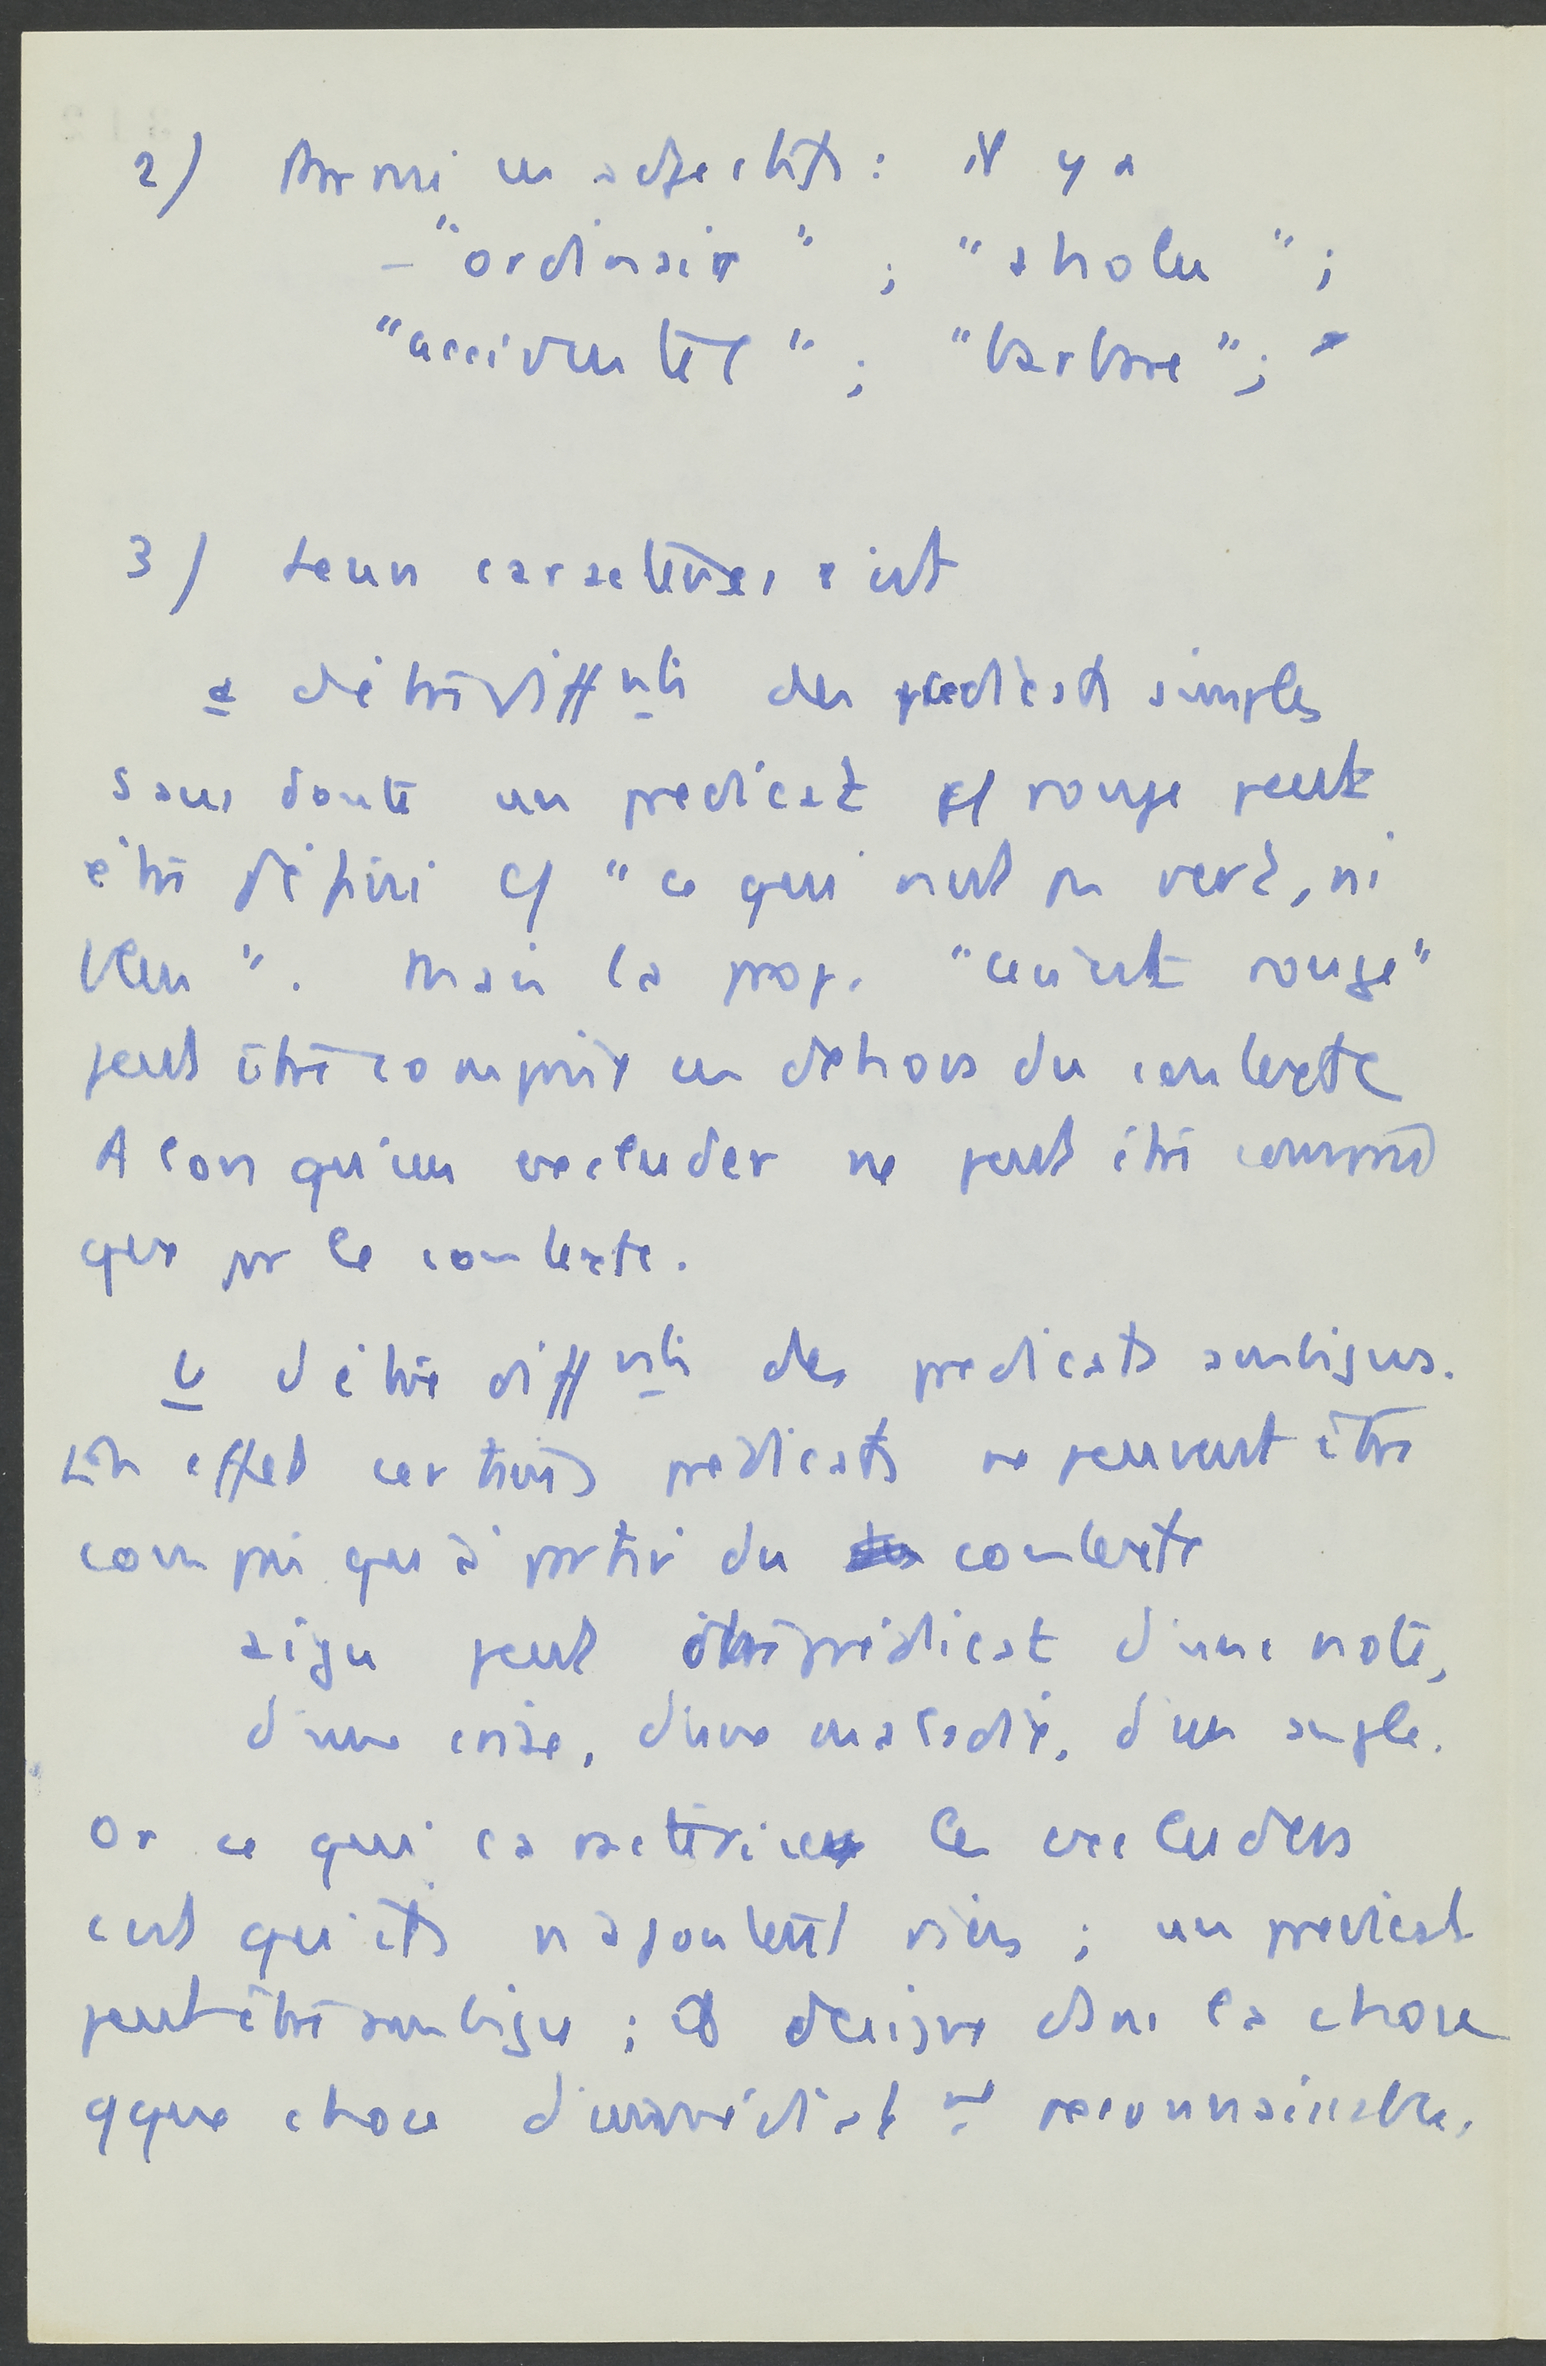 2) Parmi ces adjectifs : il y a
- "ordinaire" ; "absolu" ;
"accidentel" ; "barbare" ;
3) Leurs caractères c'est
a d'être diff nts des predicats simples
sans doute un predicat cf rouge peut
être défini cf "ce qui n'est pas vert, ni
bleu". Mais la prop. "ceci est rouge"
peut être comprise en dehors du contexte
Alors qu'un excluder ne peut être compris
que par le contexte.
b d'être diff nts des predicats ambigus.
En effet certains predicats ne peuvent être
compris qu'à partir du contexte
aigu peut être prédicat d'une note,
d'une crise, d'une maladie, d'un angle.
Or ce qui caractérise les excluders
c'est qu'ils n'ajoutent rien ; un predicat
peut être ambigu ; il designe dans la chose
qque chose d'immédiat mt reconnaissable.